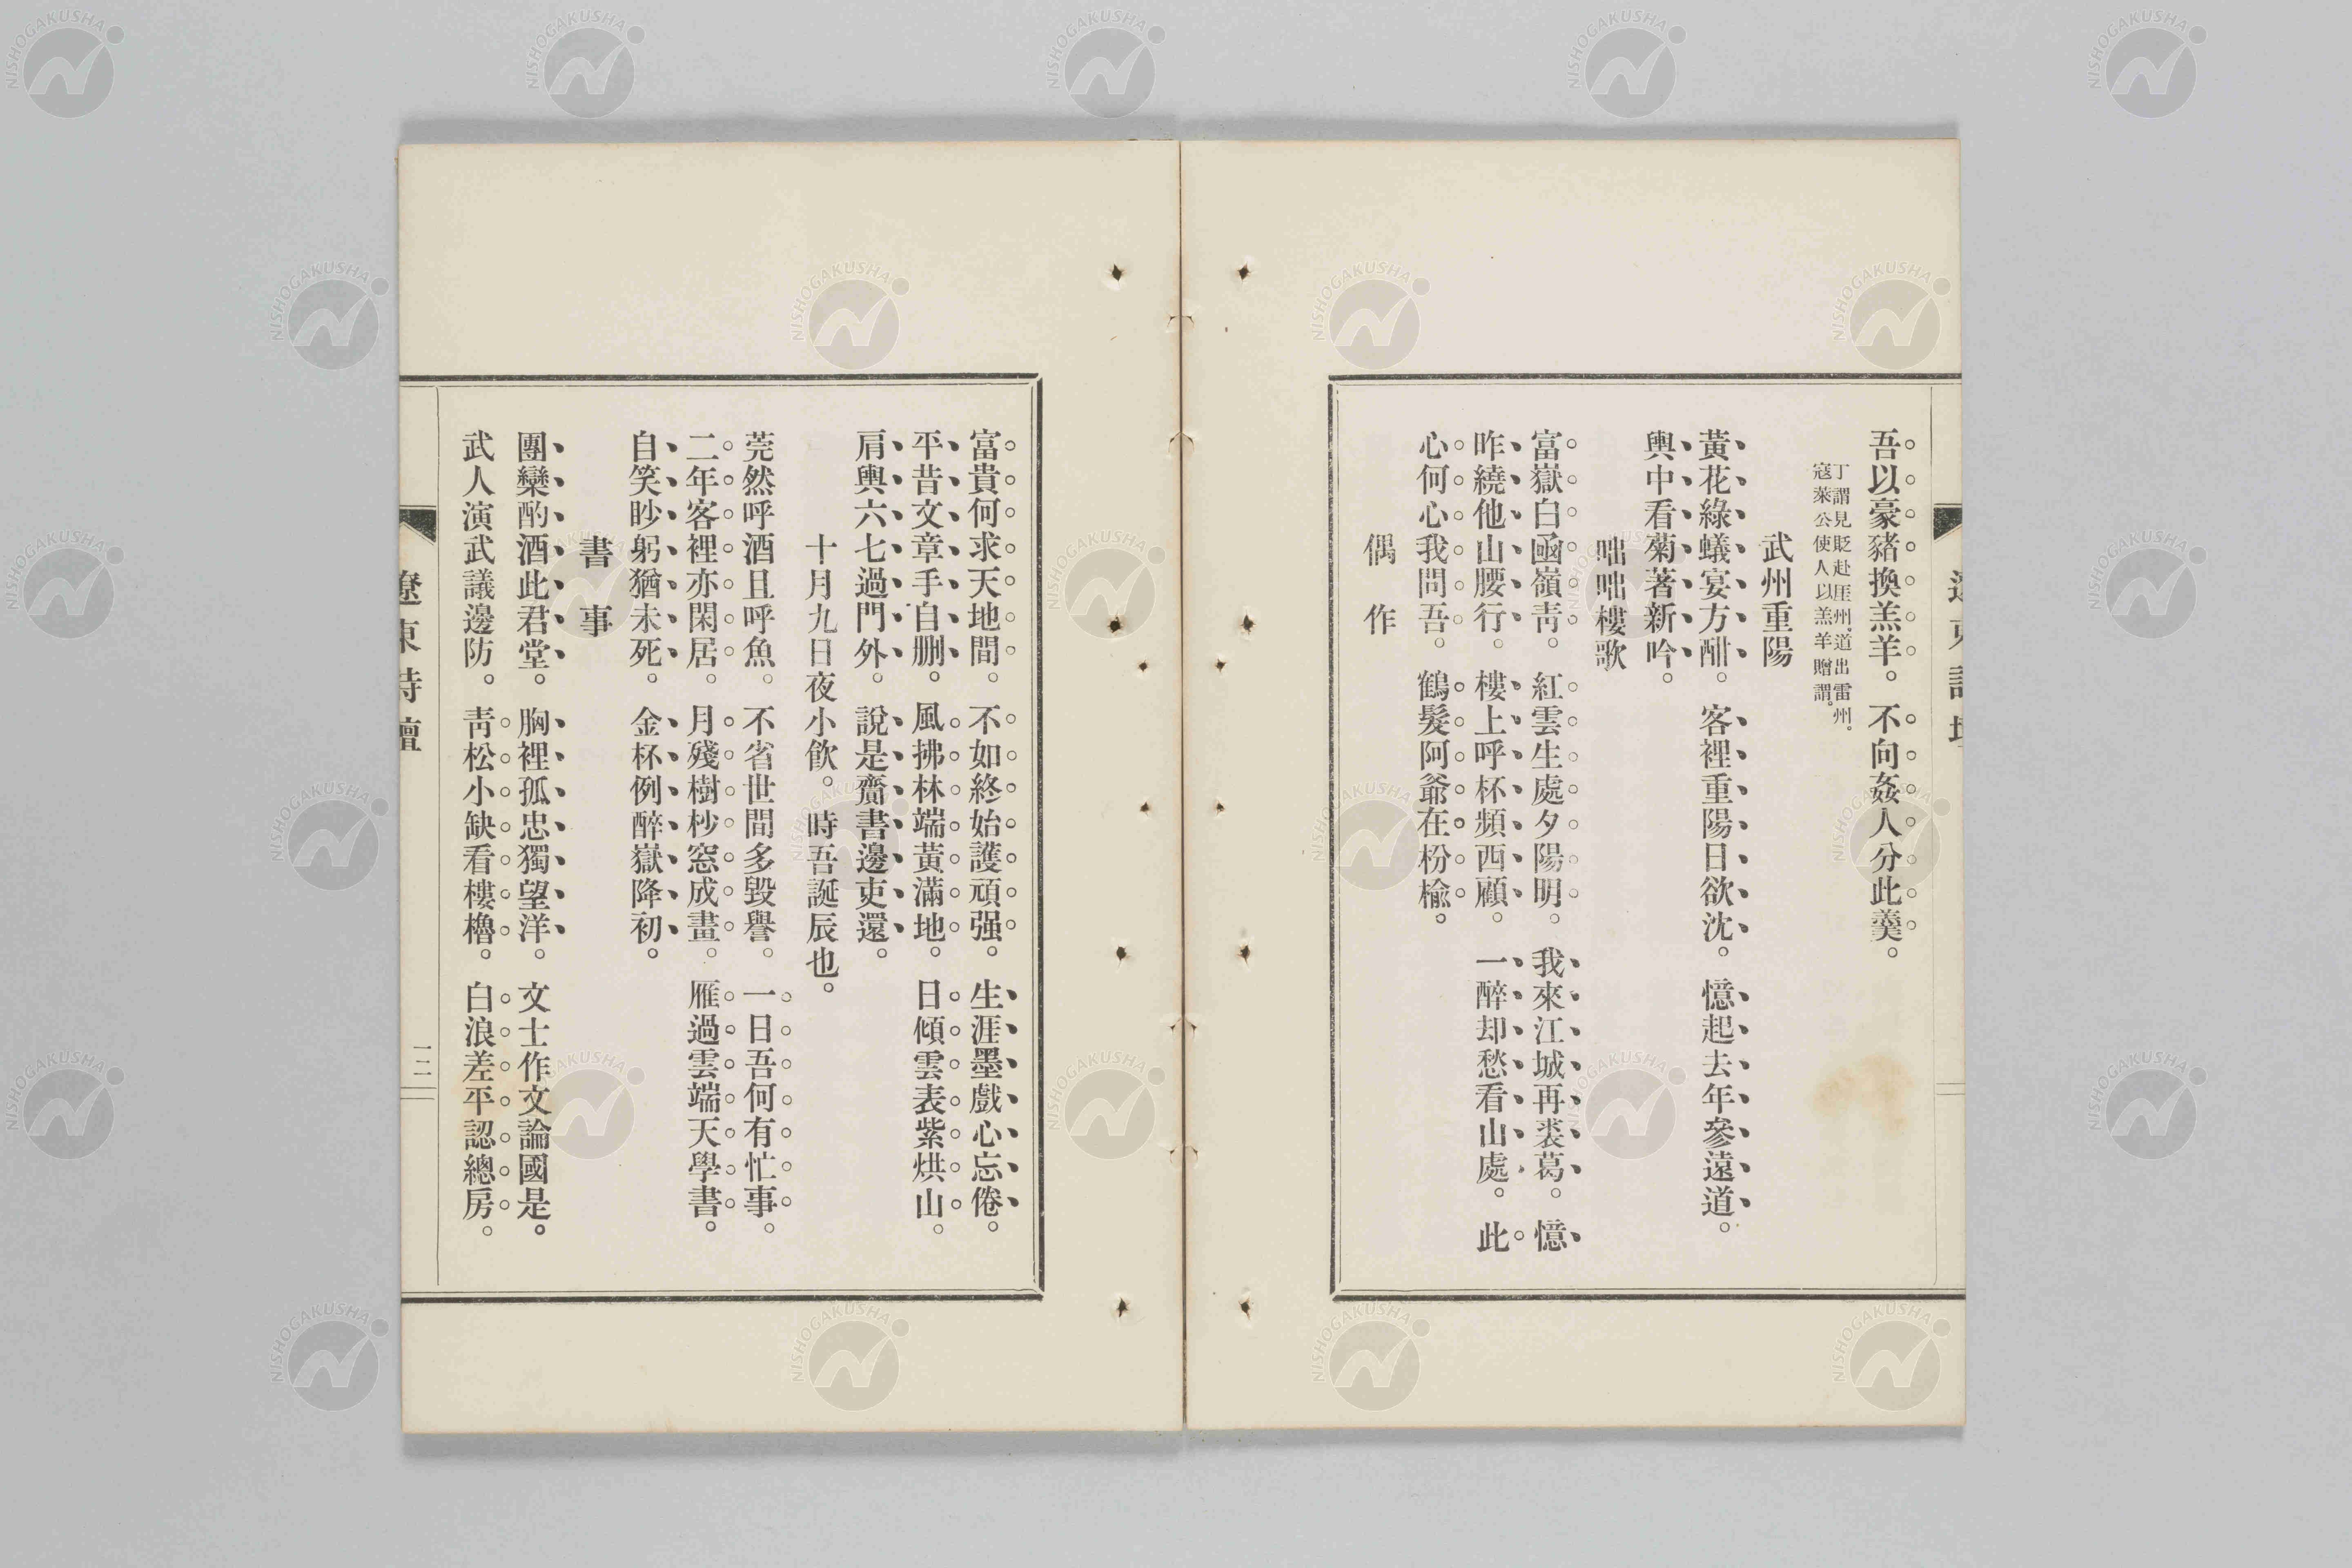 吾以豪豬換羔羊。不向姦人分此羹。
丁謂見貶赴厓州。道出雷州。
寇萊公使人以羔羊贈謂。
武州重陽
黃花綠蟻宴方酣。客裡重陽日欲沈。憶起去年參遠道。
輿中看菊著新吟。
咄咄樓歌
富嶽白凾嶺靑。紅雲生處夕陽明。我來江城再裘葛。憶
昨繞他山腰行。樓上呼杯頻西顧。一醉却愁看山處。此
心何心我問吾。鶴髮阿爺在枌楡。
偶作
富貴何求天地間。不如終始護頑强。生涯墨戲心忘倦。
平昔文章手自删。風拂林端黃滿地。日傾雲表紫烘山。
肩輿六七過門外。說是齎書邊吏還。
十月九日夜小飮。時吾誕辰也。
莞然呼酒且呼魚。不省世間多毀譽。一日吾何有忙事。
二年客裡亦閑居。月殘樹杪窓成畫。雁過雲端天學書。
自笑眇躬猶未死。金杯例醉嶽降初。
書事
團欒酌酒此君堂。胸裡孤忠獨望洋。文士作文論國是。
武人演武議邊防。靑松小缺看樓櫓。白浪差平認總房。
遼東詩壇
一二
NISHOGAKUSHA